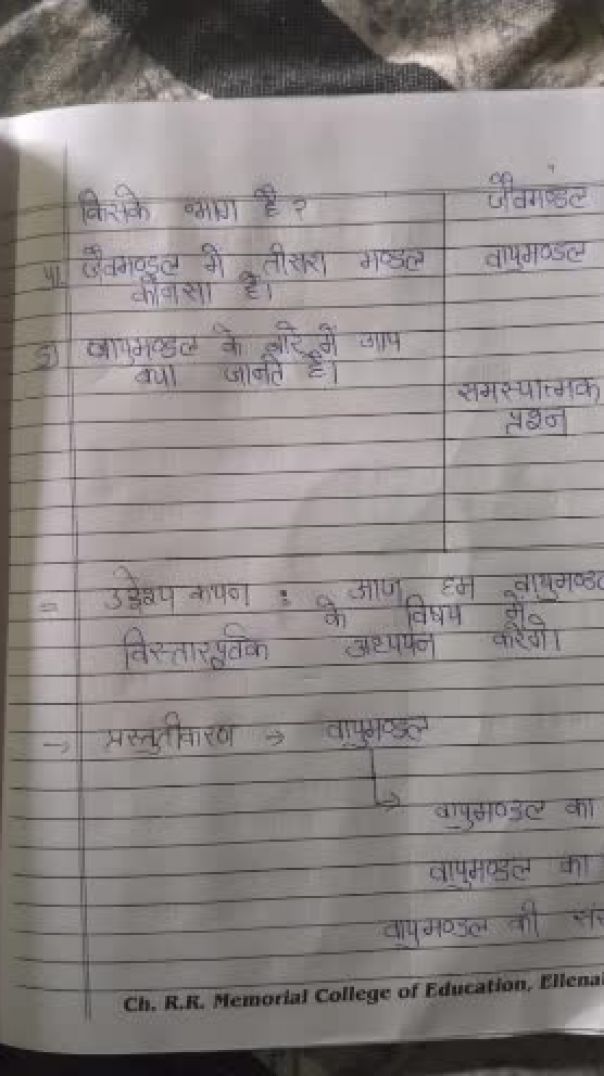 किसके भाग है ?
जैवमण्डल
4) जैवमण्डल में तीसरा मण्डल
वायुमण्डल
कौनसा है।
5) वायुमण्डल के बारे में आप
क्या जानते है।
समस्यात्मक
प्रश्न
= उद्देश्य कथन : आज हम
के विषय में
विस्तारपूर्वक अध्ययन करेंगे।
→ प्रस्तुतीकरण → वायुमण्डल
वायुमण्डल का
वायुमण्डल का
वायुमण्डल की
Ch. R.R. Memorial College of Education,